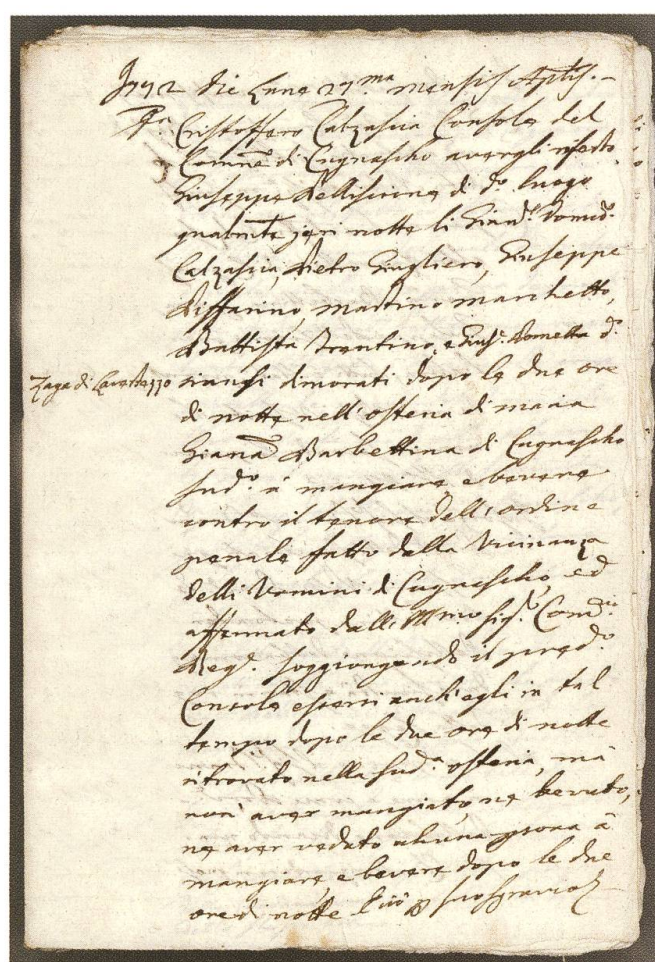 1792 die Lune 27.ma mensis Aplis.
Cristofforo Calzascia Console del
Comne di Cugnascho avergli riferto
Giuseppe Pelliscione di do. luogo
qualmte jeri notte li Giand. Domco.
Calzascia, Pietro Gugliero, Giuseppe
Piffarino, Martino Marchetto,
Battista Trentino, e Giuse. Pometta do.
Zaga di Lavertezzo siansi dimorati dopo le due ore
di notte nell'osteria di maria
Giana Barbettina di Cugnascho
sudo. à mangiare e bevere
contro il tenore dell'ordine
penale fatto dalla Vicinanza
delli Uomini di Cugnascho, ed
affermato dall'Illmo sigr. Comrio
Regte. soggiongendo il predo.
Console essersi anch'egli in tal
tempo dopo le due ore di notte
ritrovato nella suda. osteria, mà
non aver mangiato, ne bevuto,
ne aver veduto alcuna psona à
mangiare, e bevere dopo le due
ore di notte suo sgravio